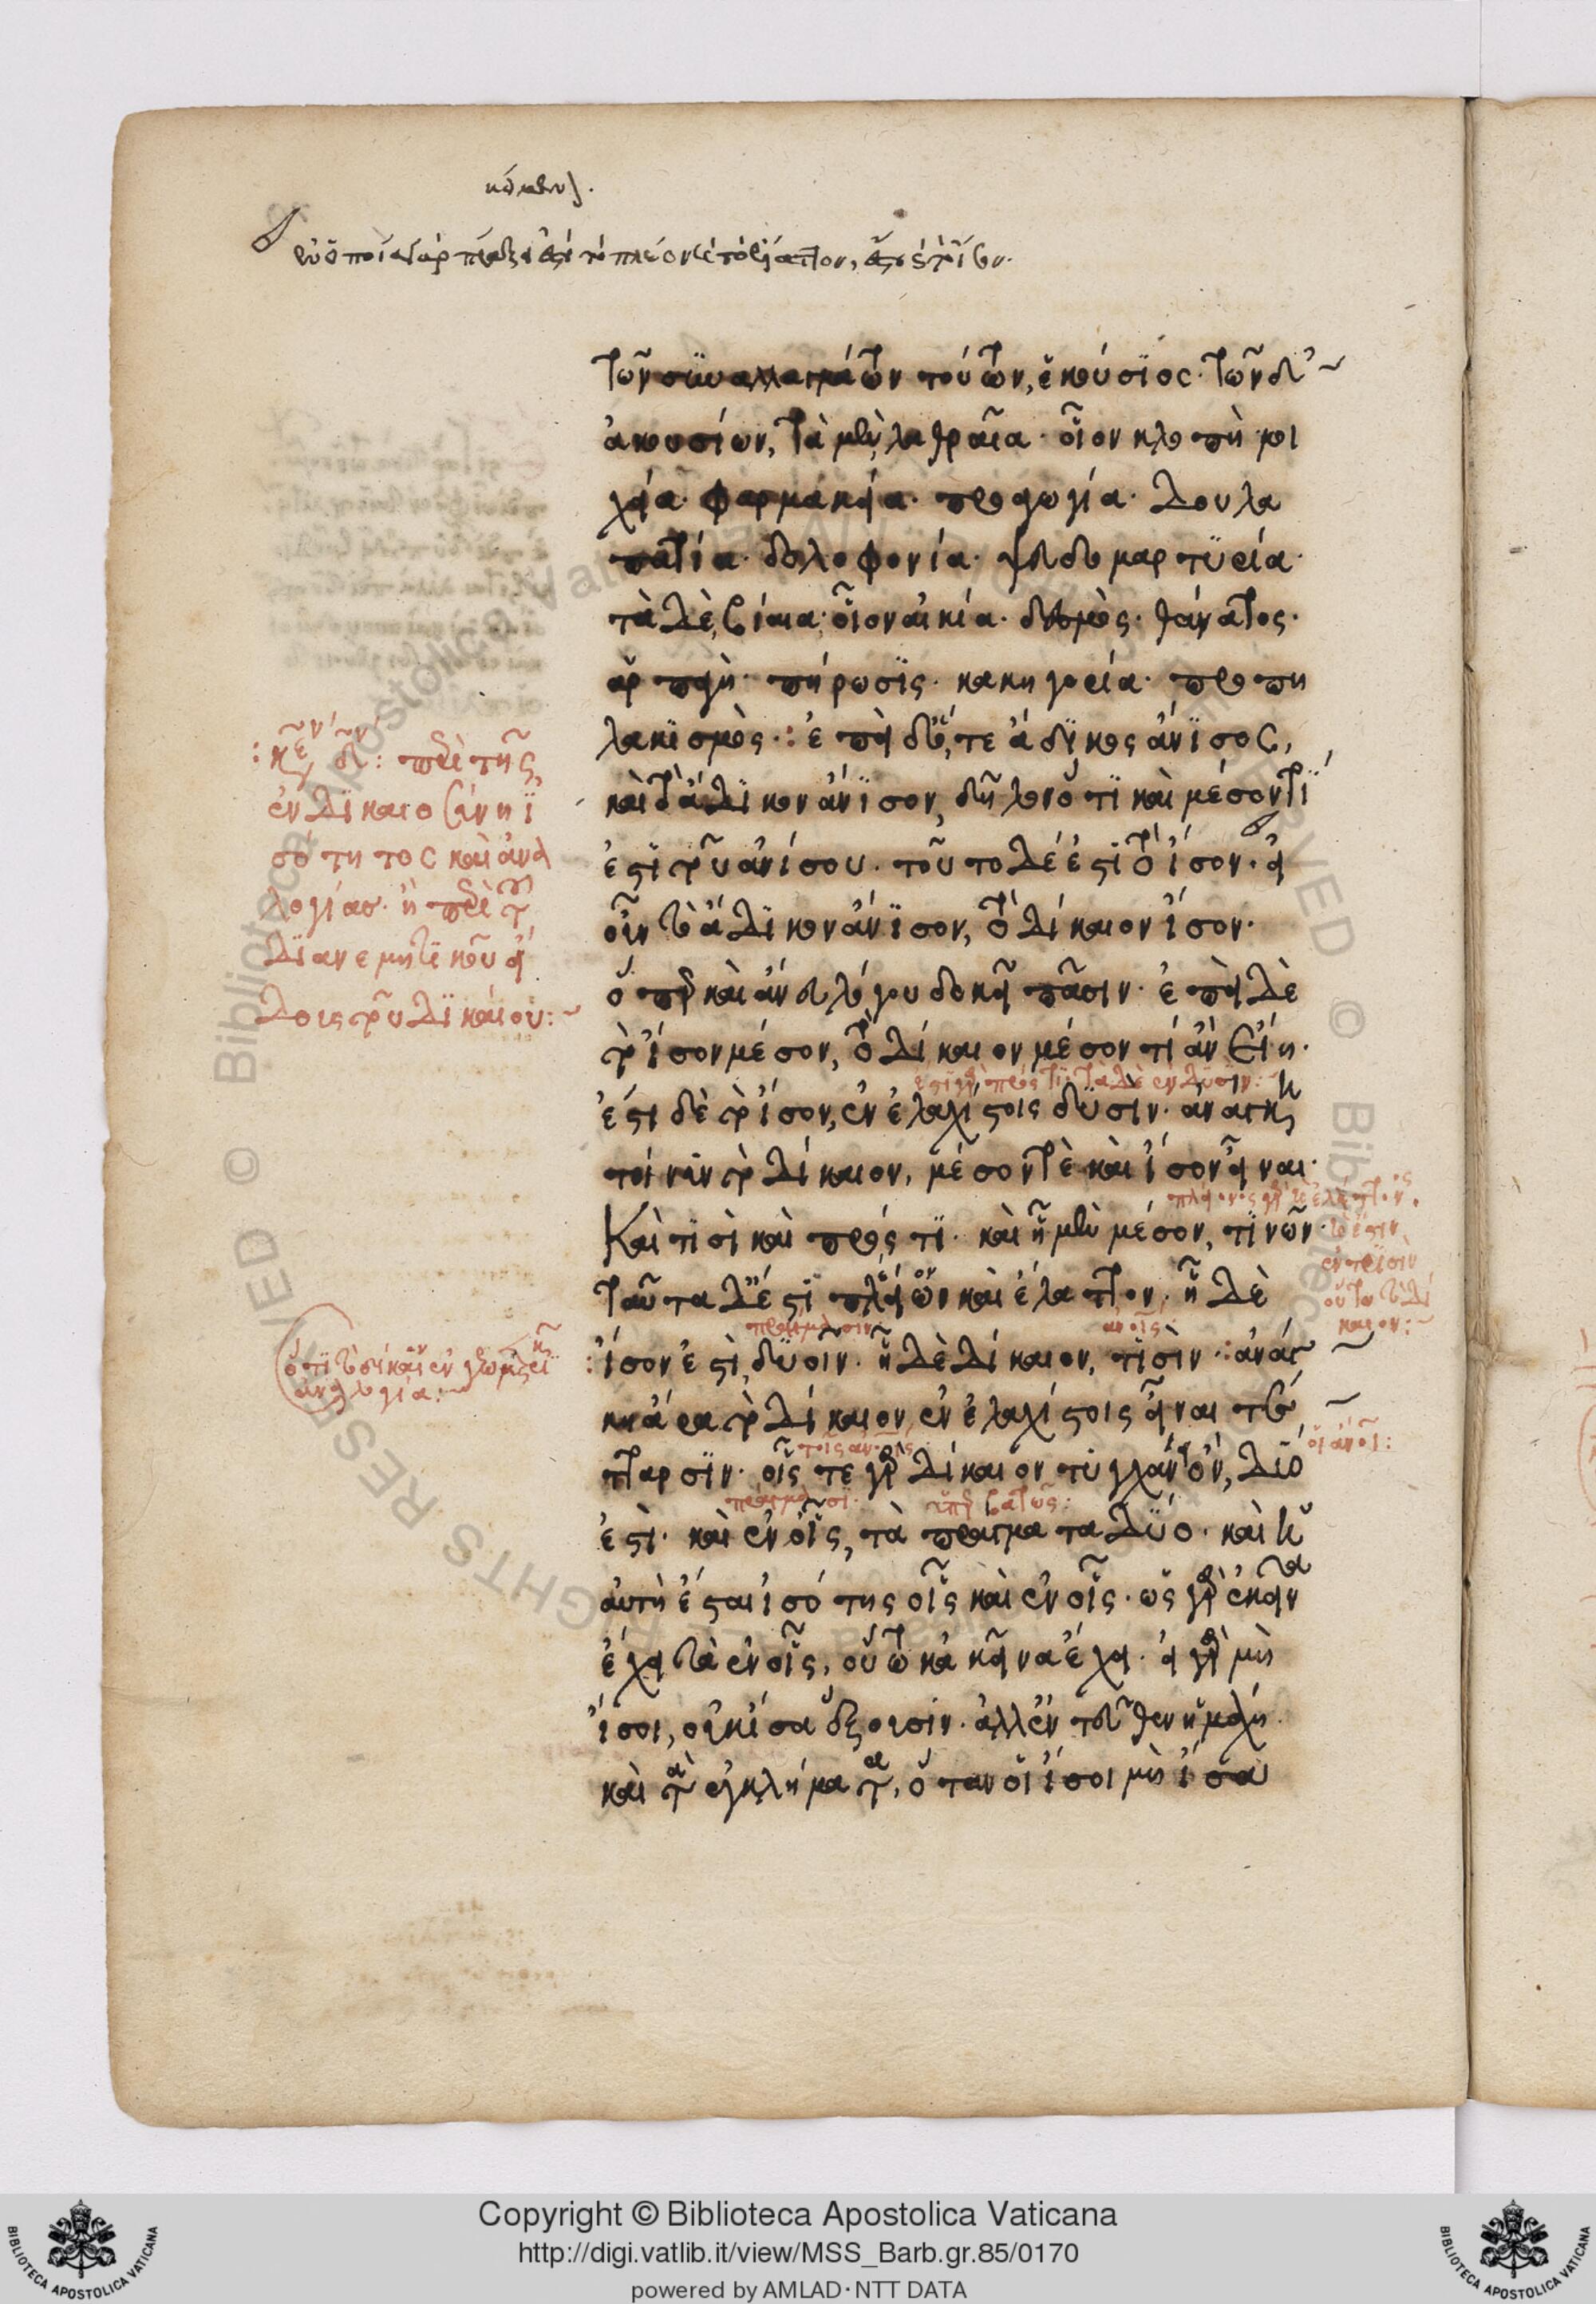 κείμενον.
ἐν ὁποίᾳ γὰρ πράξει ἐστὶ τὸ πλέον καὶ τὸ ἔλαττον, ἐστὶ καὶ τὸ ἴσον.
τῶν συναλλαγμάτων τούτων, ἑκούσιος. τῶν δ'
ἀκουσίων, τὰ μὲν λαθραῖα. οἷον κλοπὴ μοι
χεία. φαρμακεία. προαγωγία. δουλα
πατία. δολοφονία. ψευδομαρτυρία.
τὰ δὲ, βίαια. οἷον αἰκία. δεσμὸς. θάνατος.
ἁρπαγὴ. πήρωσις. κακηγορία. προπη
λακισμὸς .: ἐπεὶ δ' ὅ, τε ἄδικος ἄνισος,
καὶ τὸ ἄδικον ἄνισον, δῆλον ὅτι καὶ μέσον τί
ἐστι τοῦ ἀνίσου. τοῦτο δέ ἐστι τὸ ἴσον. εἰ
οὖν τὸ ἄδικον ἄνισον, τὸ δίκαιον ἴσον.
ὅπερ καὶ ἄνευ λόγου δοκεῖ πᾶσιν. ἐπεὶ δὲ
τὸ ἴσον μέσον, τὸ δίκαιον μέσον τί ἂν εἴη.
ἔστι δὲ τὸ ἴσον, ἐν ἐλαχίστοις δυσίν. ἀνάγκη
τοίνυν τὸ δίκαιον, μέσον τὲ καὶ ἴσον εἶναι.
Καὶ τισὶ καὶ πρός τι. καὶ ᾗ μὲν μέσον, τινῶν.
ταῦτα δ' ἐστὶ πλεῖον καὶ ἔλαττον. ᾗ δὲ
ἴσον ἐστὶ, δυοῖν. ᾗ δὲ δίκαιον, τισὶν .: ἀνάγ
κη ἄρα τὸ δίκαιον ἐν ἐλαχίστοις εἶναι τέ
τταρσιν. οἷς τε γὰρ δίκαιον τυγχάνει ὂν, δύο
ἐστὶ. καὶ ἐν οἷς, τὰ πράγματα δύο. καὶ ἡ
αὐτὴ ἔσται ἰσότης οἷς καὶ ἐν οἷς. ὡς γὰρ ἐκεῖνα
ἔχει τὰ ἐν οἷς, οὕτω κἀκεῖνα ἔχει. εἰ γὰρ μὴ
ἴσοι, οὐκ ἴσα ἕξουσιν. ἀλλ' ἐντεῦθεν ἡ μάχη
καὶ τὰ ἐγκλήματα, ὅταν οἱ ἴσοι μὴ ἴσα
περὶ τῆς
ἐν δικαιοσύνῃ ἰ
σότητος καὶ ἀνα
λογίας. ἢ περὶ τοῦ
διανεμητικοῦ εἴ
δους τοῦ δικαίου:~
ἀναλογία:~
ἐστὶ γὰρ πρός τι. τὰ δὲ ἐν δυσίν:~
πλείονος γὰρ καὶ ἐλάττονος.
τὸ ἴσον
ἐν τρισὶν
οὕτω τὸ δί
καιον:~
πράγμασιν
ἀνοις
τοῖς ἀνοις
οἱ ἀνοι:
πράγμασι.
ὑπερβατῶς:
Copyright © Biblioteca Apostolica Vaticana
http://digi.vatlib.it/view/MSS_Barb.gr.85/0170
powered by AMLAD·NTT DATA
BIBLIOTECA APOSTOLICA VATICANA
BIBLIOTECA APOSTOLICA VATICANA